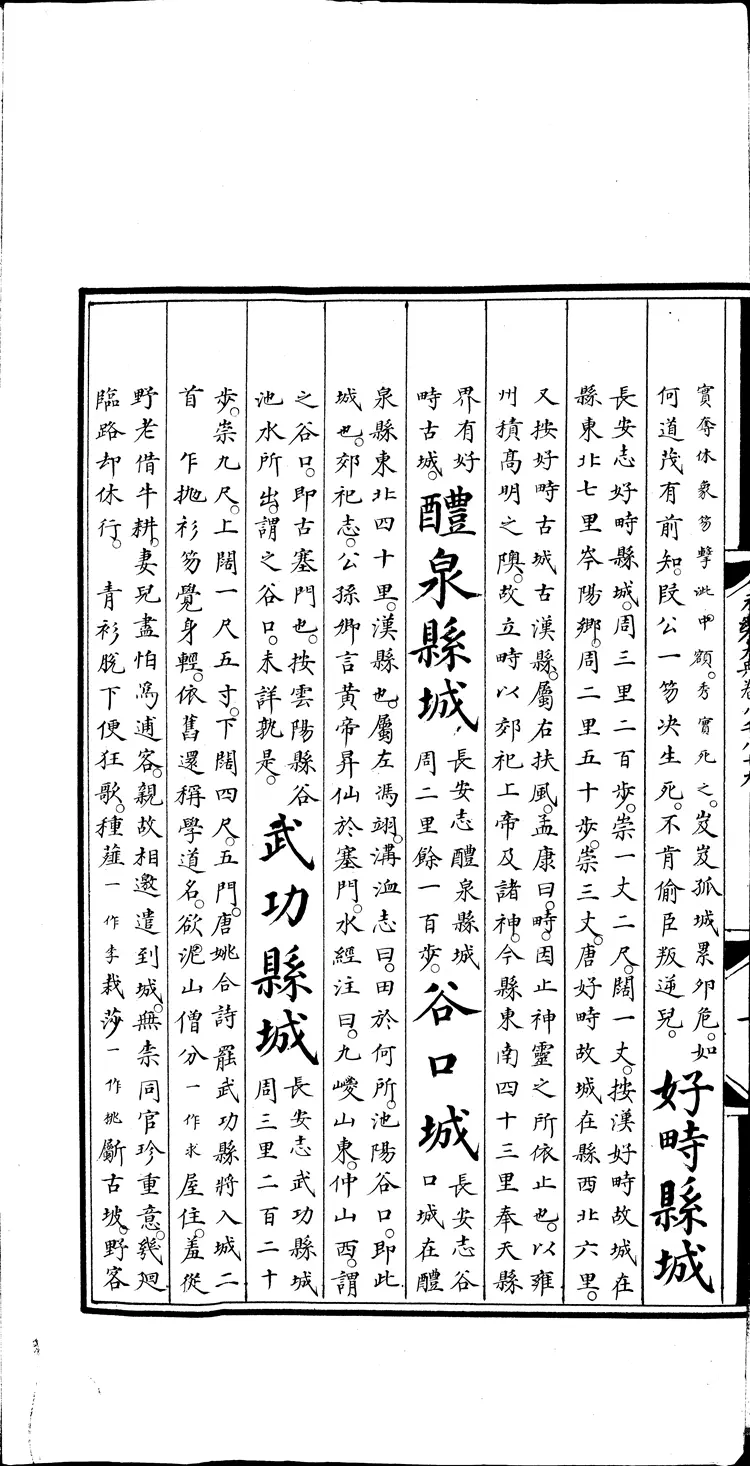 實奪休象笏擊泚中額。秀實死之。岌岌孤城累卵危。如
何道茂有前知。段公一笏決生死。不肯偷臣叛逆兒。
好畤縣城
長安志好畤縣城。周三里二百步。崇一丈二尺。闊一丈。按漢好畤故城在
縣東北七里岑陽鄉。周二里五十步。崇三丈。唐好畤故城在縣西北六里。
又按好畤古城古漢縣。屬右扶風。孟康曰。畤。因止神靈之所依止也。以雍
州積高明之隩。故立畤以郊祀上帝及諸神。今縣東南四十三里奉天縣
界有好
畤古城。
醴泉縣城
長安志醴泉縣城
周二里餘一百步。
谷口城
長安志谷
口城在醴
泉縣東北四十里。漢縣也。屬左馮翊。溝洫志曰。田於何所。池陽谷口。即此
城也。郊祀志。公孫卿言黃帝昇仙於塞門。水經注曰。九嵕山東。仲山西。謂
之谷口。即古塞門也。按雲陽縣谷
池水所出。謂之谷口。未詳孰是。
武功縣城
長安志武功縣城
周三里二百二十
步。崇九尺。上闊一尺五寸。下闊四尺。五門。唐姚合詩罷武功縣將入城二
首 乍拋衫笏覺身輕。依舊還稱學道名。欲泥山僧分一作求屋住。羞從
野老借牛耕。妻兒盡怕為逋客。親故相邀遣到城。無柰同官珍重意。幾廻
臨路却休行。 青衫脫下便狂歌。種薤一作李栽莎一作挑斸古坡。野客